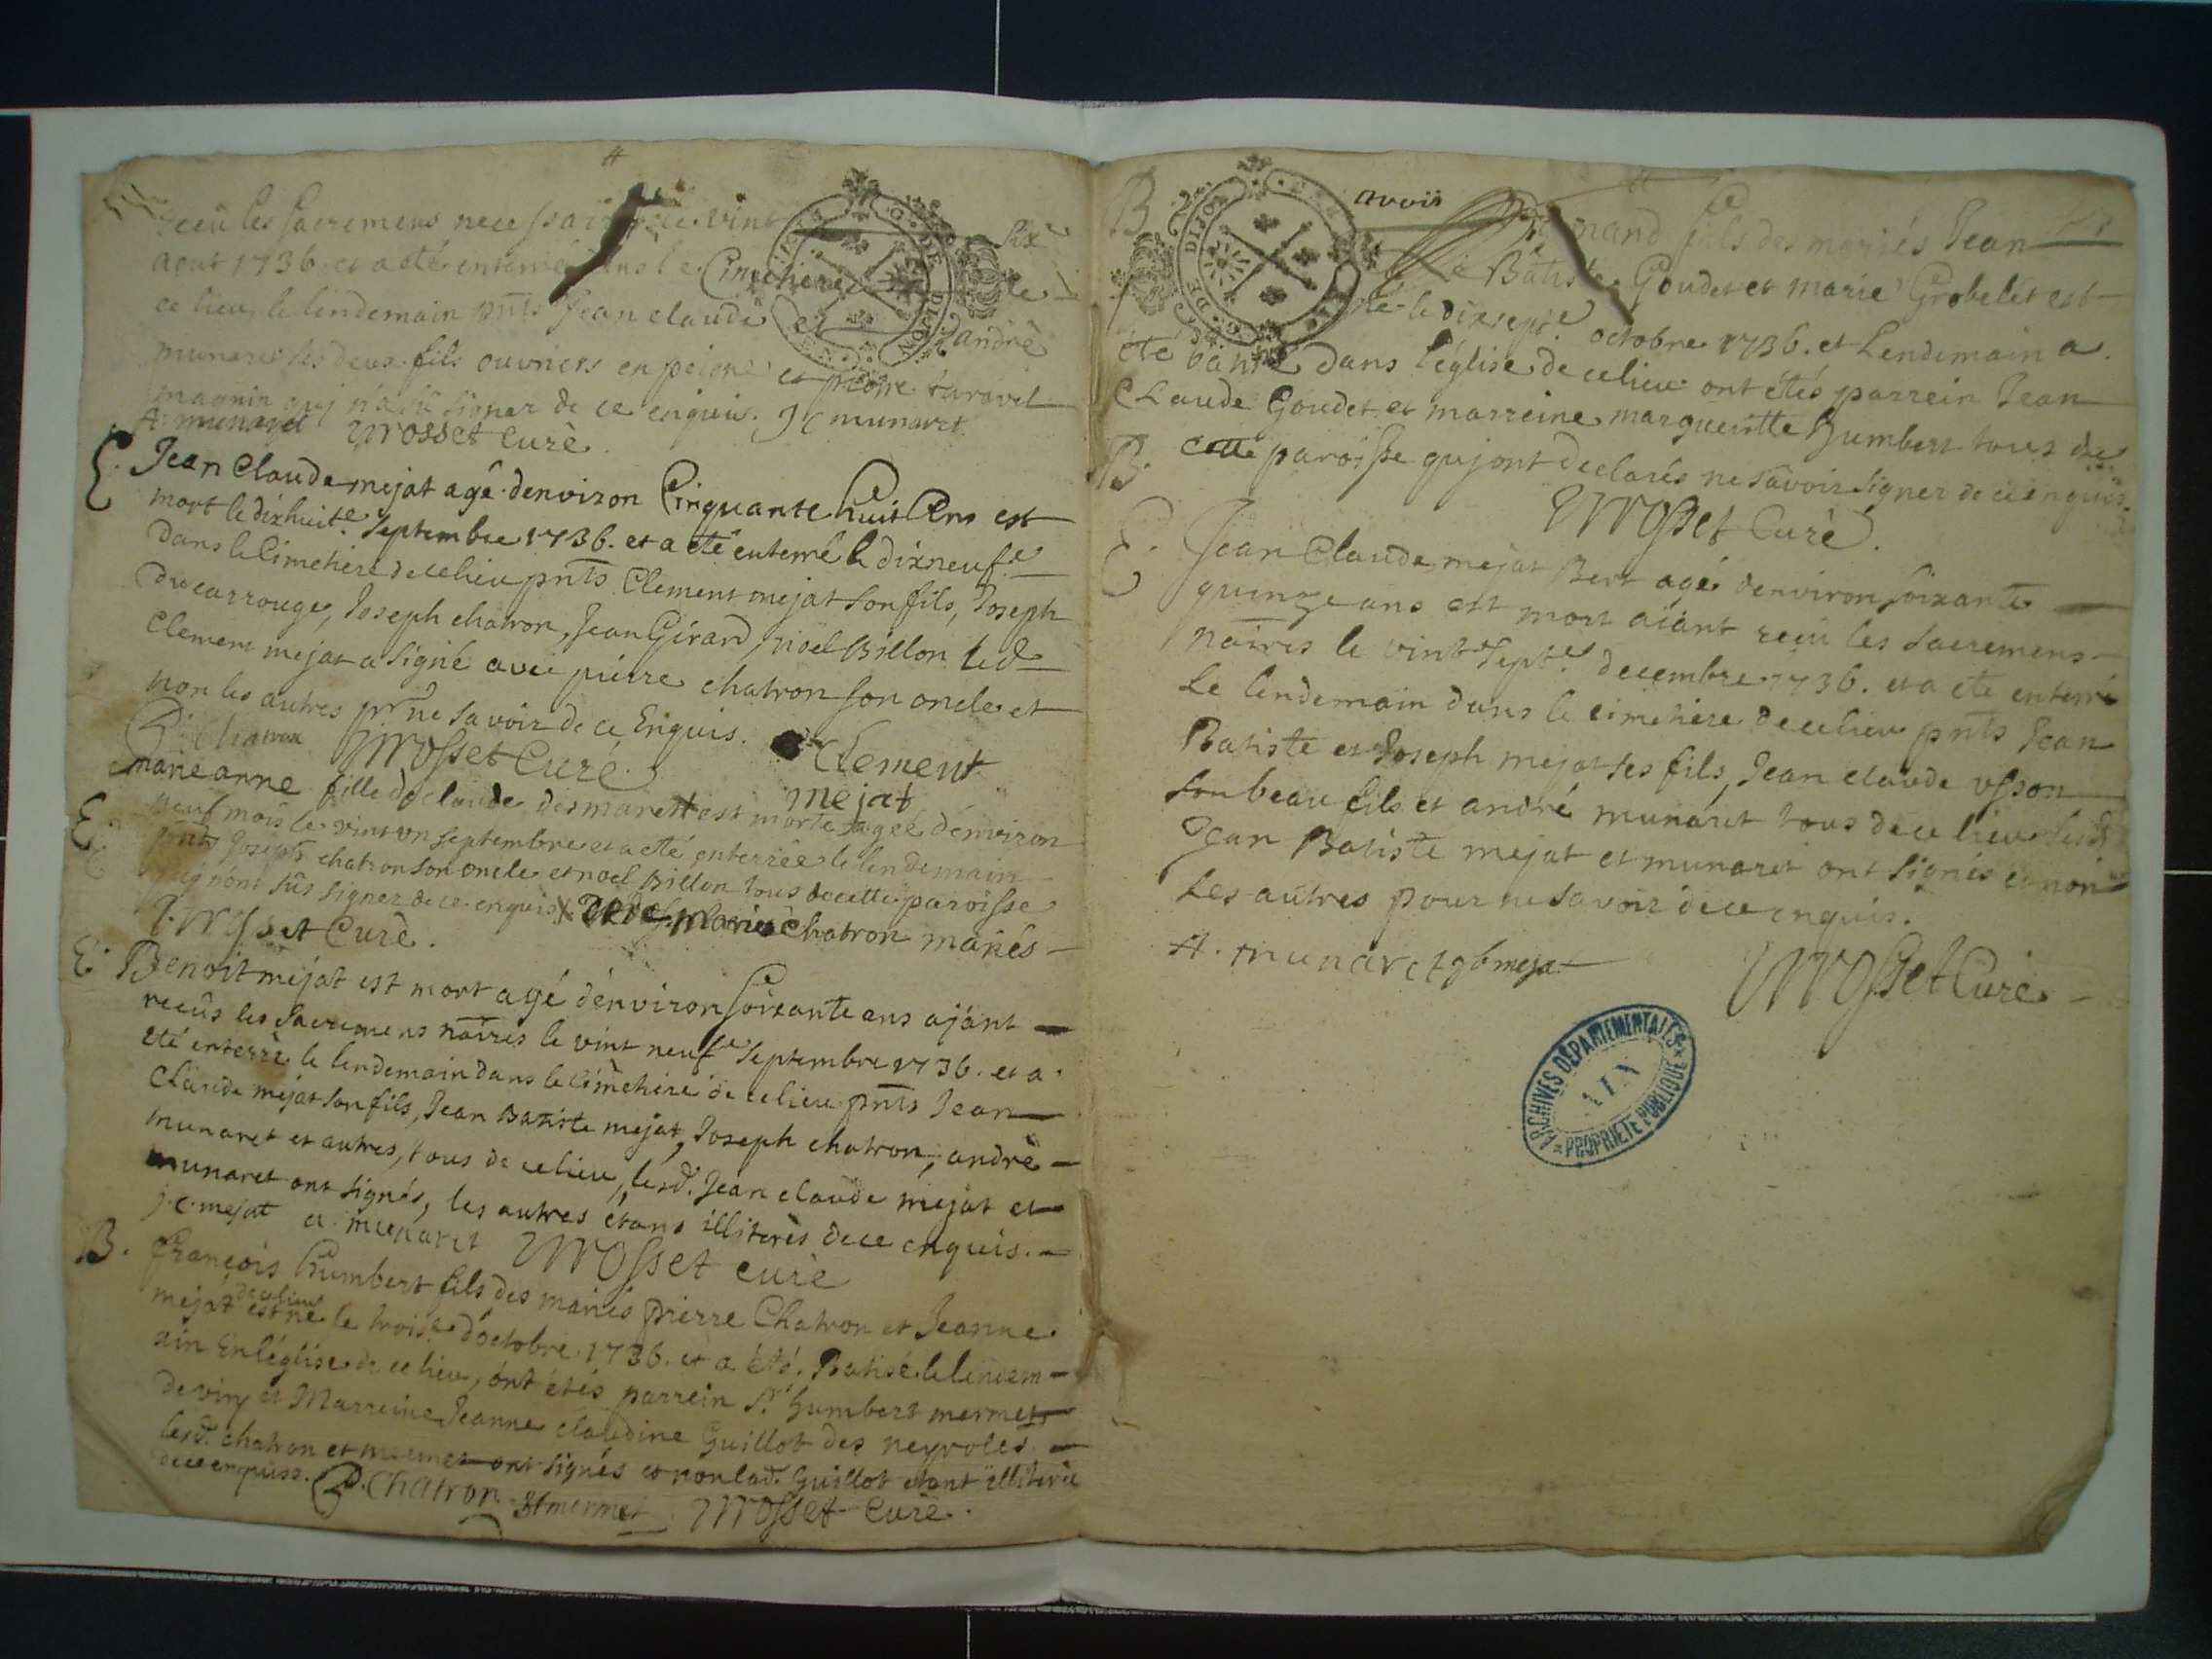 receü les sacremens necessaires le vint six
aout 1736. et a eté enterré dans le Cimetiere de
ce lieu le lendemain pnts Jean claude et andré
munaret ses deux fils ouvriers en peigne et pierre taravel
magnin quj n'a sü signer de ce enquis. JC munaret
A. munaret Mosset Curé.
E. Jean Claude mejat agé denviron Cinquante huit Ans est
mort le dixhuite Septembre 1736. et a eté enterré le dixneufe
dans le Cimetiere de ce lieu pnts Clement mejat son fils, Joseph
ducarrouge, Joseph chatron, Jean Girard, noel Billon led.
Clement mejat a signé avec pierre chatron son oncle et
non les autres pr ne savoir de ce Enquis.
P. chatron Mosset Curé. Clement
mejat
E. marie anne fille de claude desmarest est morte agée denviron
neuf mois le vint un septembre et a eté enterrée le lendemain
pnts Joseph chatron son oncle et noel Billon tous de cette paroisse
quj n'ont sûs signer de ce enquis X et de marie chatron mariés
Mosset Curé.
E. Benoit mejat est mort agé d'environ soixante ans ajant
receûs les sacremens naires le vint neufe Septembre 1736. et a
eté enterré le lendemain dans le Cimetiere de ce lieu pnts Jean
Claude mejat son fils, Jean Batiste mejat, Joseph chatron, andré
munaret et autres, tous de ce lieu, lesd. Jean claude mejat et
munaret ont signés, les autres étans illiterés de ce enquis.
j.c. mejat a. munaret Mosset curé
B. François humbert fils des mariés pierre Chatron et Jeanne
de ce lieu
mejat est né le troise d'octobre 1736. et a été Batisé le lendem
ain En l'église de ce lieu, ont étés parrein Sr. humbert mermet
de viry et Marreine Jeanne claudine Guillot des neyroles
lesd. chatron et mermet ont signés et non lad. Guillot etant illiterée
de ce enquise. P. Chatron. H mermet Mosset Curé.
avois
B. fils des mariés Jean
Batiste Goudet et marie Grobelet est
né le dixsepte octobre 1736. et Lendemain a
été batisé dans l'église de ce lieu ont étés parrein Jean
Claude Goudet et marreine margueritte humbert tous de
B. cette paroisse quj ont declarés ne savoir signer de ce enquis.
Mosset Curé.
E. Jean Claude mejat Bert agé denviron soixante
quinze ans est mort aiant receü les sacremens
naires le vint septe decembre 1736. et a eté enterré
le lendemain dans le cimetiere de ce lieu pnts Jean
Batiste et Joseph mejat ses fils, Jean claude usson
son beau fils et andré munaret tous de ce lieu lesd.
Jean Batiste mejat et munaret ont signés et non
Les autres pour ne savoir de ce enquis.
A. munaret jb mejat
Mosset Curé
ARCHIVES DEPARTEMENTALES
AIN
PROPRIETE PUBLIQUE